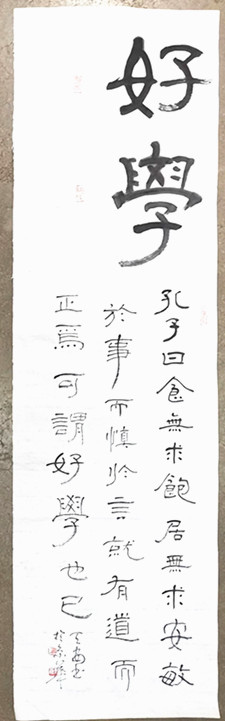 好學
孔子曰食無求飽居無求安敏
於事而慎於言就有道而
正焉可謂好學也已